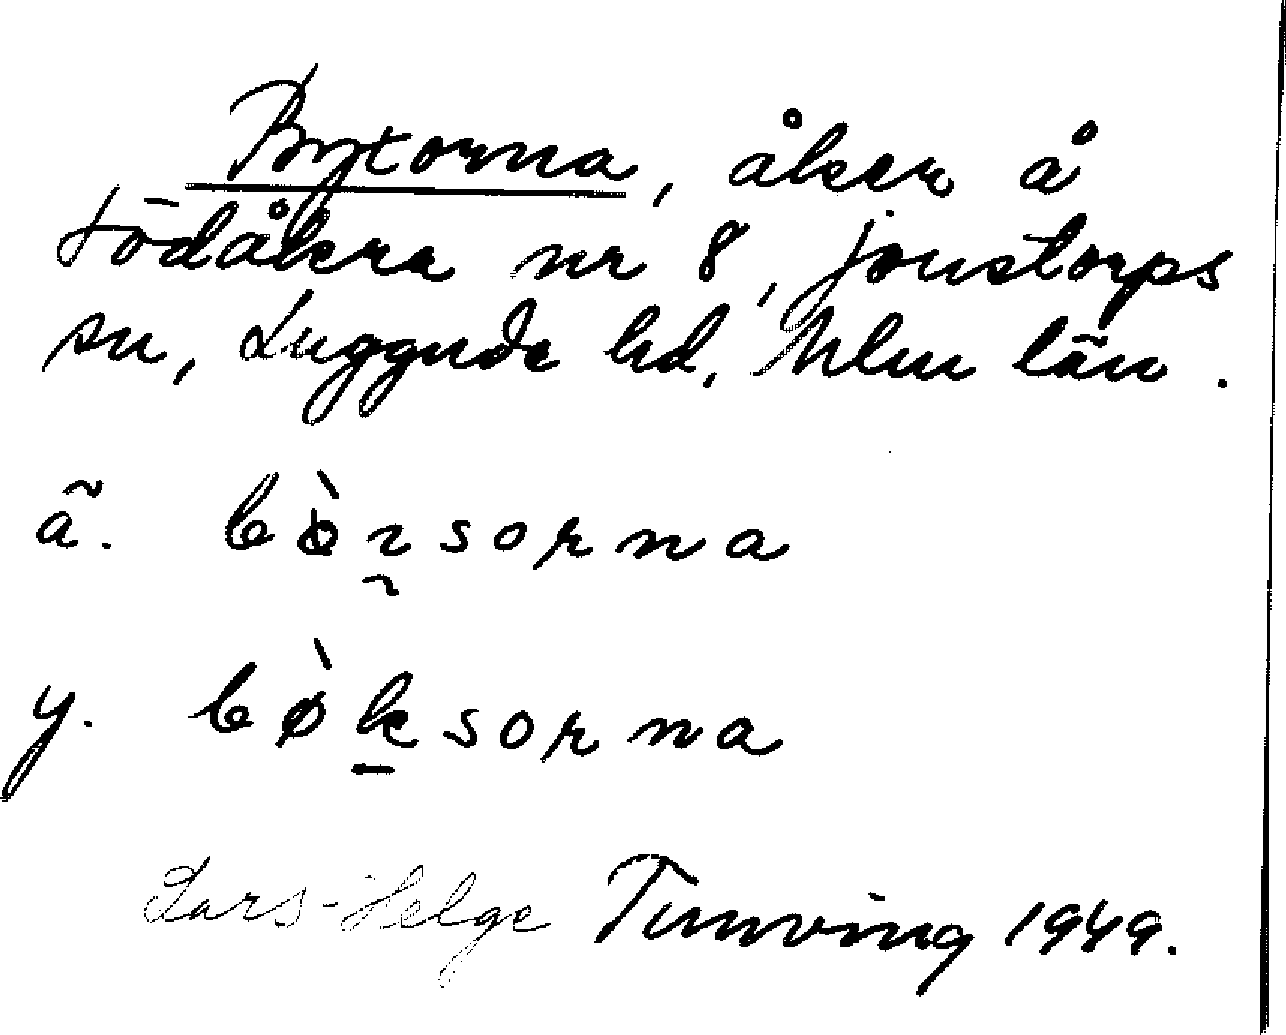 Byxorna, åker å
Södåkra nr 8, Jonstorps
sn, Luggude hd, Mlm län.
ã. bòɿsorna
y. bø̀ksorna
Lars-Helge Tunving 1949.